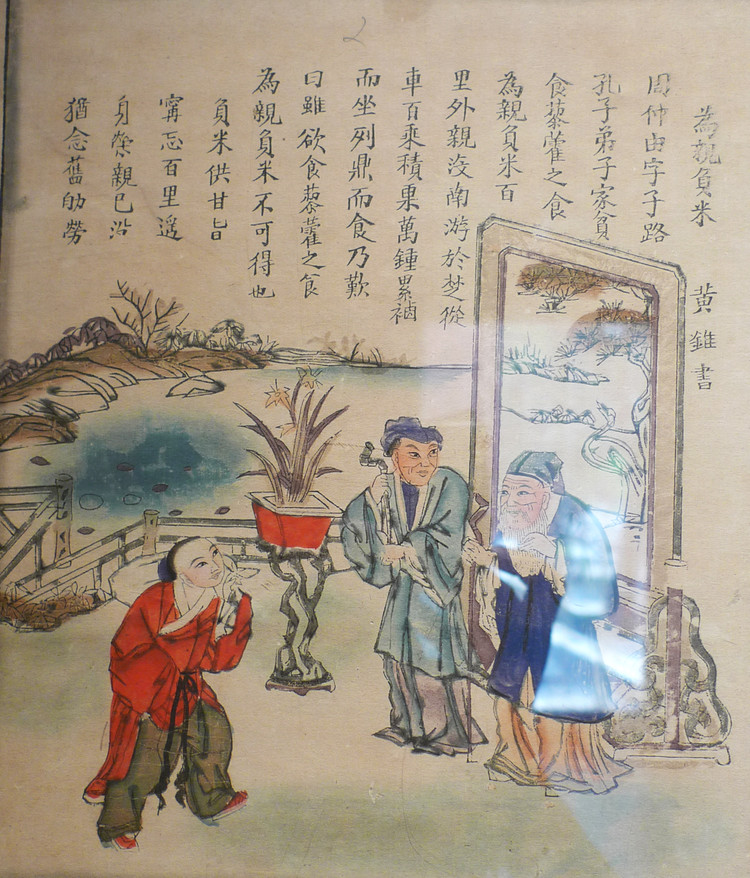 為親負米 黄錐書
周仲由字子路
孔子弟子家貧
食藜藿之食
為親負米百
里外親沒南游於楚從
車百乘積粟萬鍾累裀
而坐列鼎而食乃歎
曰雖欲食藜藿之食
為親負米不可得也
負米供甘旨
寧忘百里遥
身榮親已沿
猶念舊劬勞